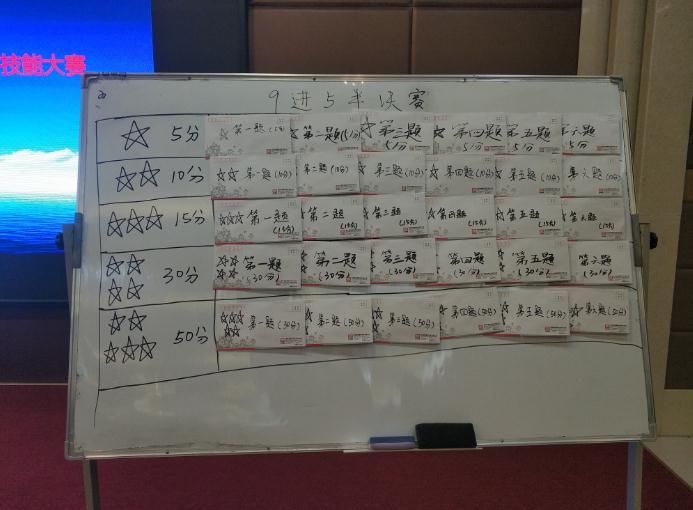 技能大赛
9进5半决赛
5分 第一题(5分) 第二题(5分) 第三题 5分 第四题 5分 第五题 5分 第六题 5分
10分 第一题(10分) 第二题(10分) 第三题(10分) 第四题(10分) 第五题(10分) 第六题(10分)
15分 第一题(15分) 第二题(15分) 第三题(15分) 第四题(15分) 第五题(15分) 第六题(15分)
30分 第一题(30分) 第二题(30分) 第三题(30分) 第四题(30分) 第五题(30分) 第六题(30分)
50分 第一题(50分) 第二题(50分) 第三题(50分) 第四题(50分) 第五题(50分) 第六题(50分)